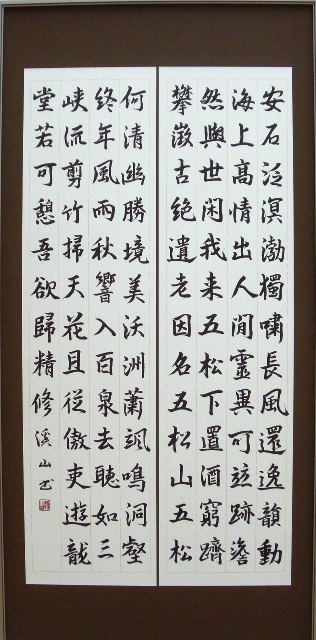 安石泛溟渤獨嘯長風還逸韻動
海上高情出人間靈異可竝跡澹
然與世閑我来五松下置酒窮躋
攀徴古絶遺老因名五松山五松
何清幽勝境美沃洲蕭颯鳴洞壑
終年風雨秋響入百泉去聴如三
峡流剪竹掃天花且従傲吏遊龍
堂若可憩吾欲歸精修 溪山書